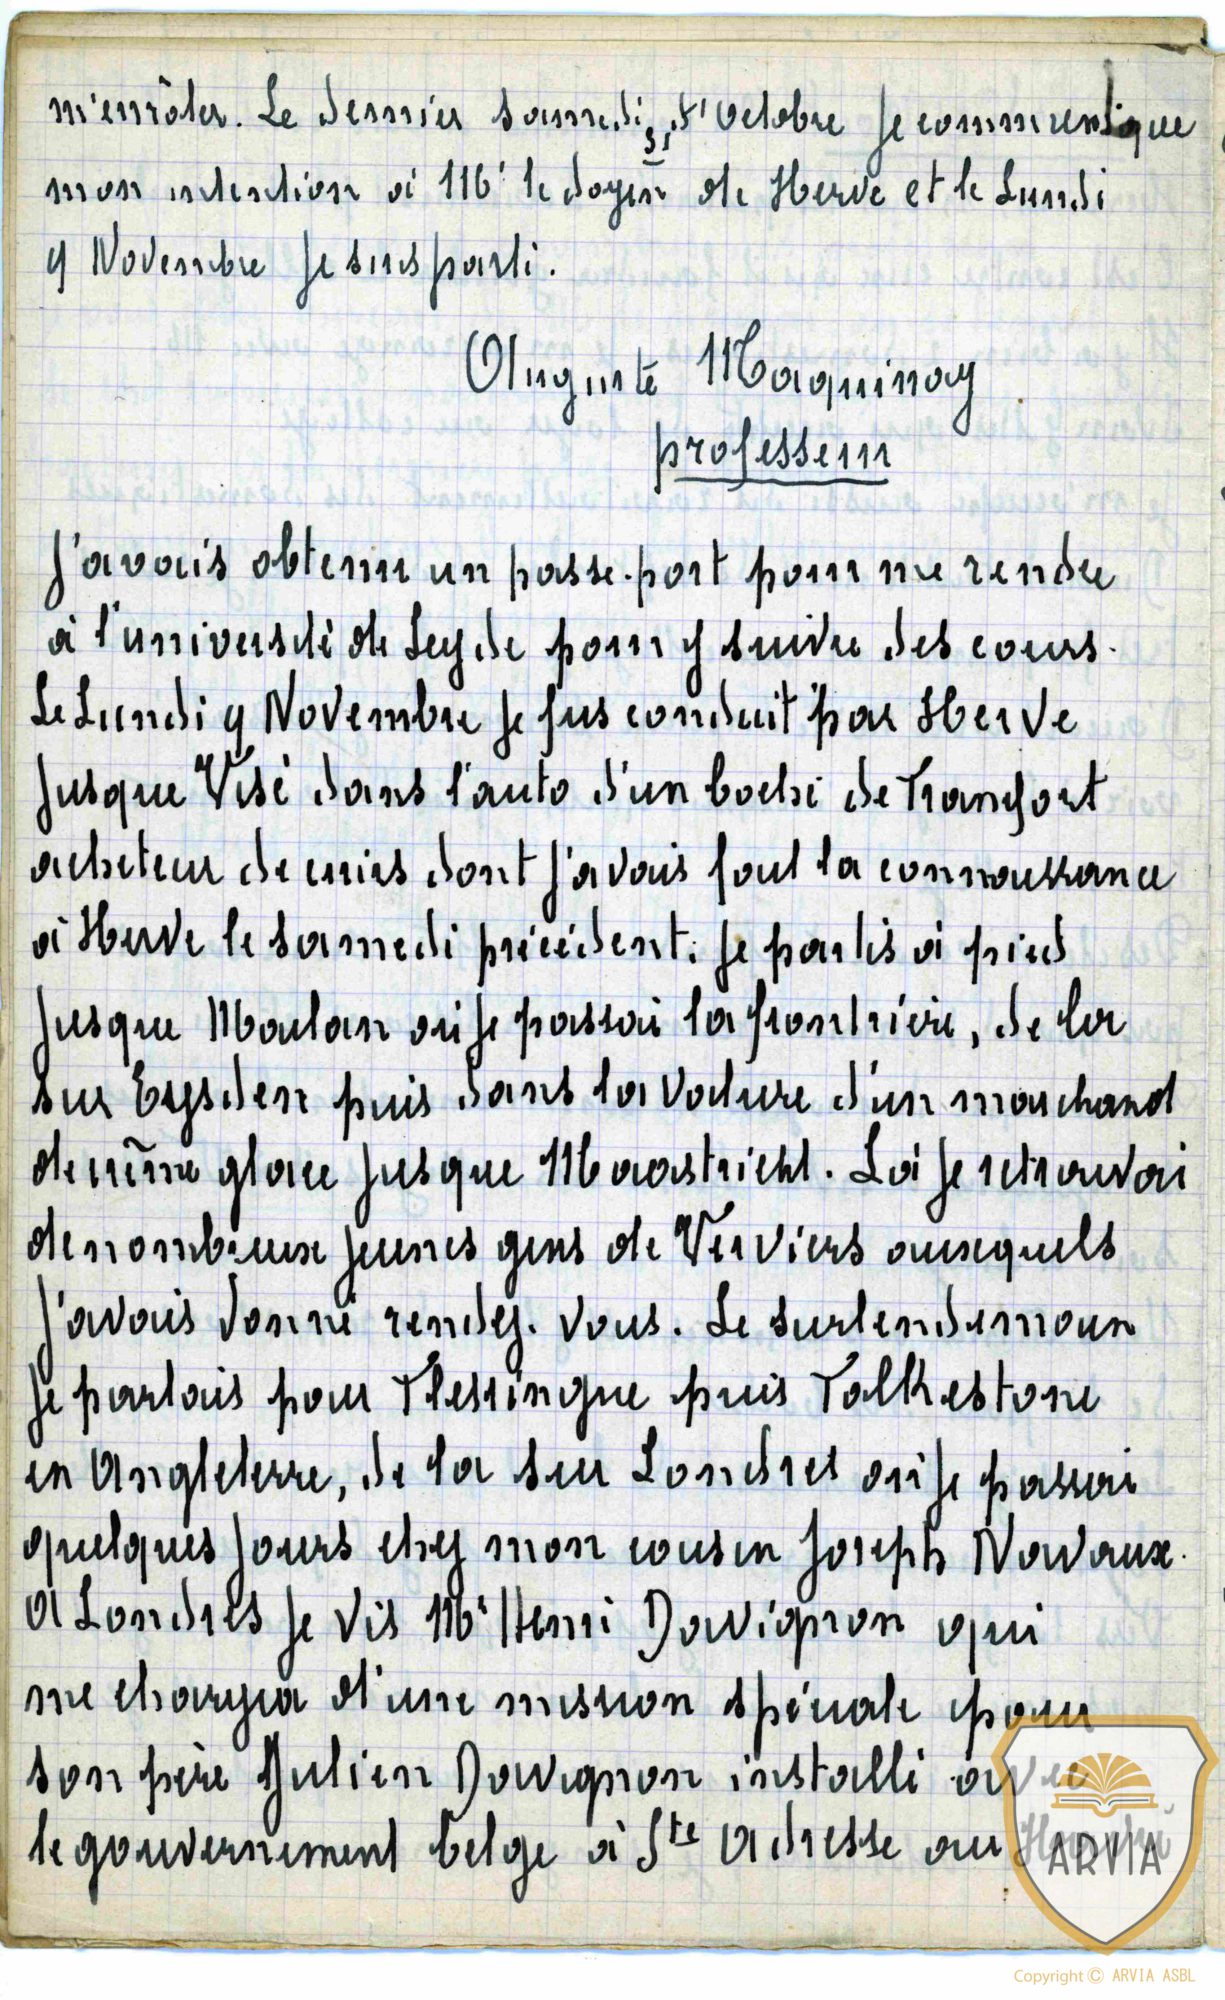 m'enrôler. Le dernier samedi, d'Octobre je communique
31
mon intention à Mr le doyen de Herve et le Lundi
9 Novembre je suis parti.
Auguste Maquinay
professeur
J'avais obtenu un passe-port pour me rendre
à l'université de Leyde pour y suivre des cours.
Le Lundi 9 Novembre je fus conduit par Herve
jusque Visé dans l'auto d'un boche de Francfort
acheteur de cuirs dont j'avais fait la connaissance
à Herve le samedi précédent. Je partis à pied
jusque Moelan où je passai la frontière, de la
sur Eysden puis dans la voiture d'un marchand
de crême glace jusque Maastricht. Là je retrouvai
de nombreux jeunes gens de Verviers auxquels
j'avais donné rendez-vous. Le surlendemain
je partais pour Flessingue puis Folkestone
en Angleterre, de la sur Londres où je passai
quelques jours chez mon cousin Joseph Navaux.
A Londres je vis Mr Henri Davignon qui
me chargea d'une mission spéciale pour
son père Julien Davignon installé avec
le gouvernement belge à Ste Adresse au
ARVIA
Copyright © ARVIA ASBL